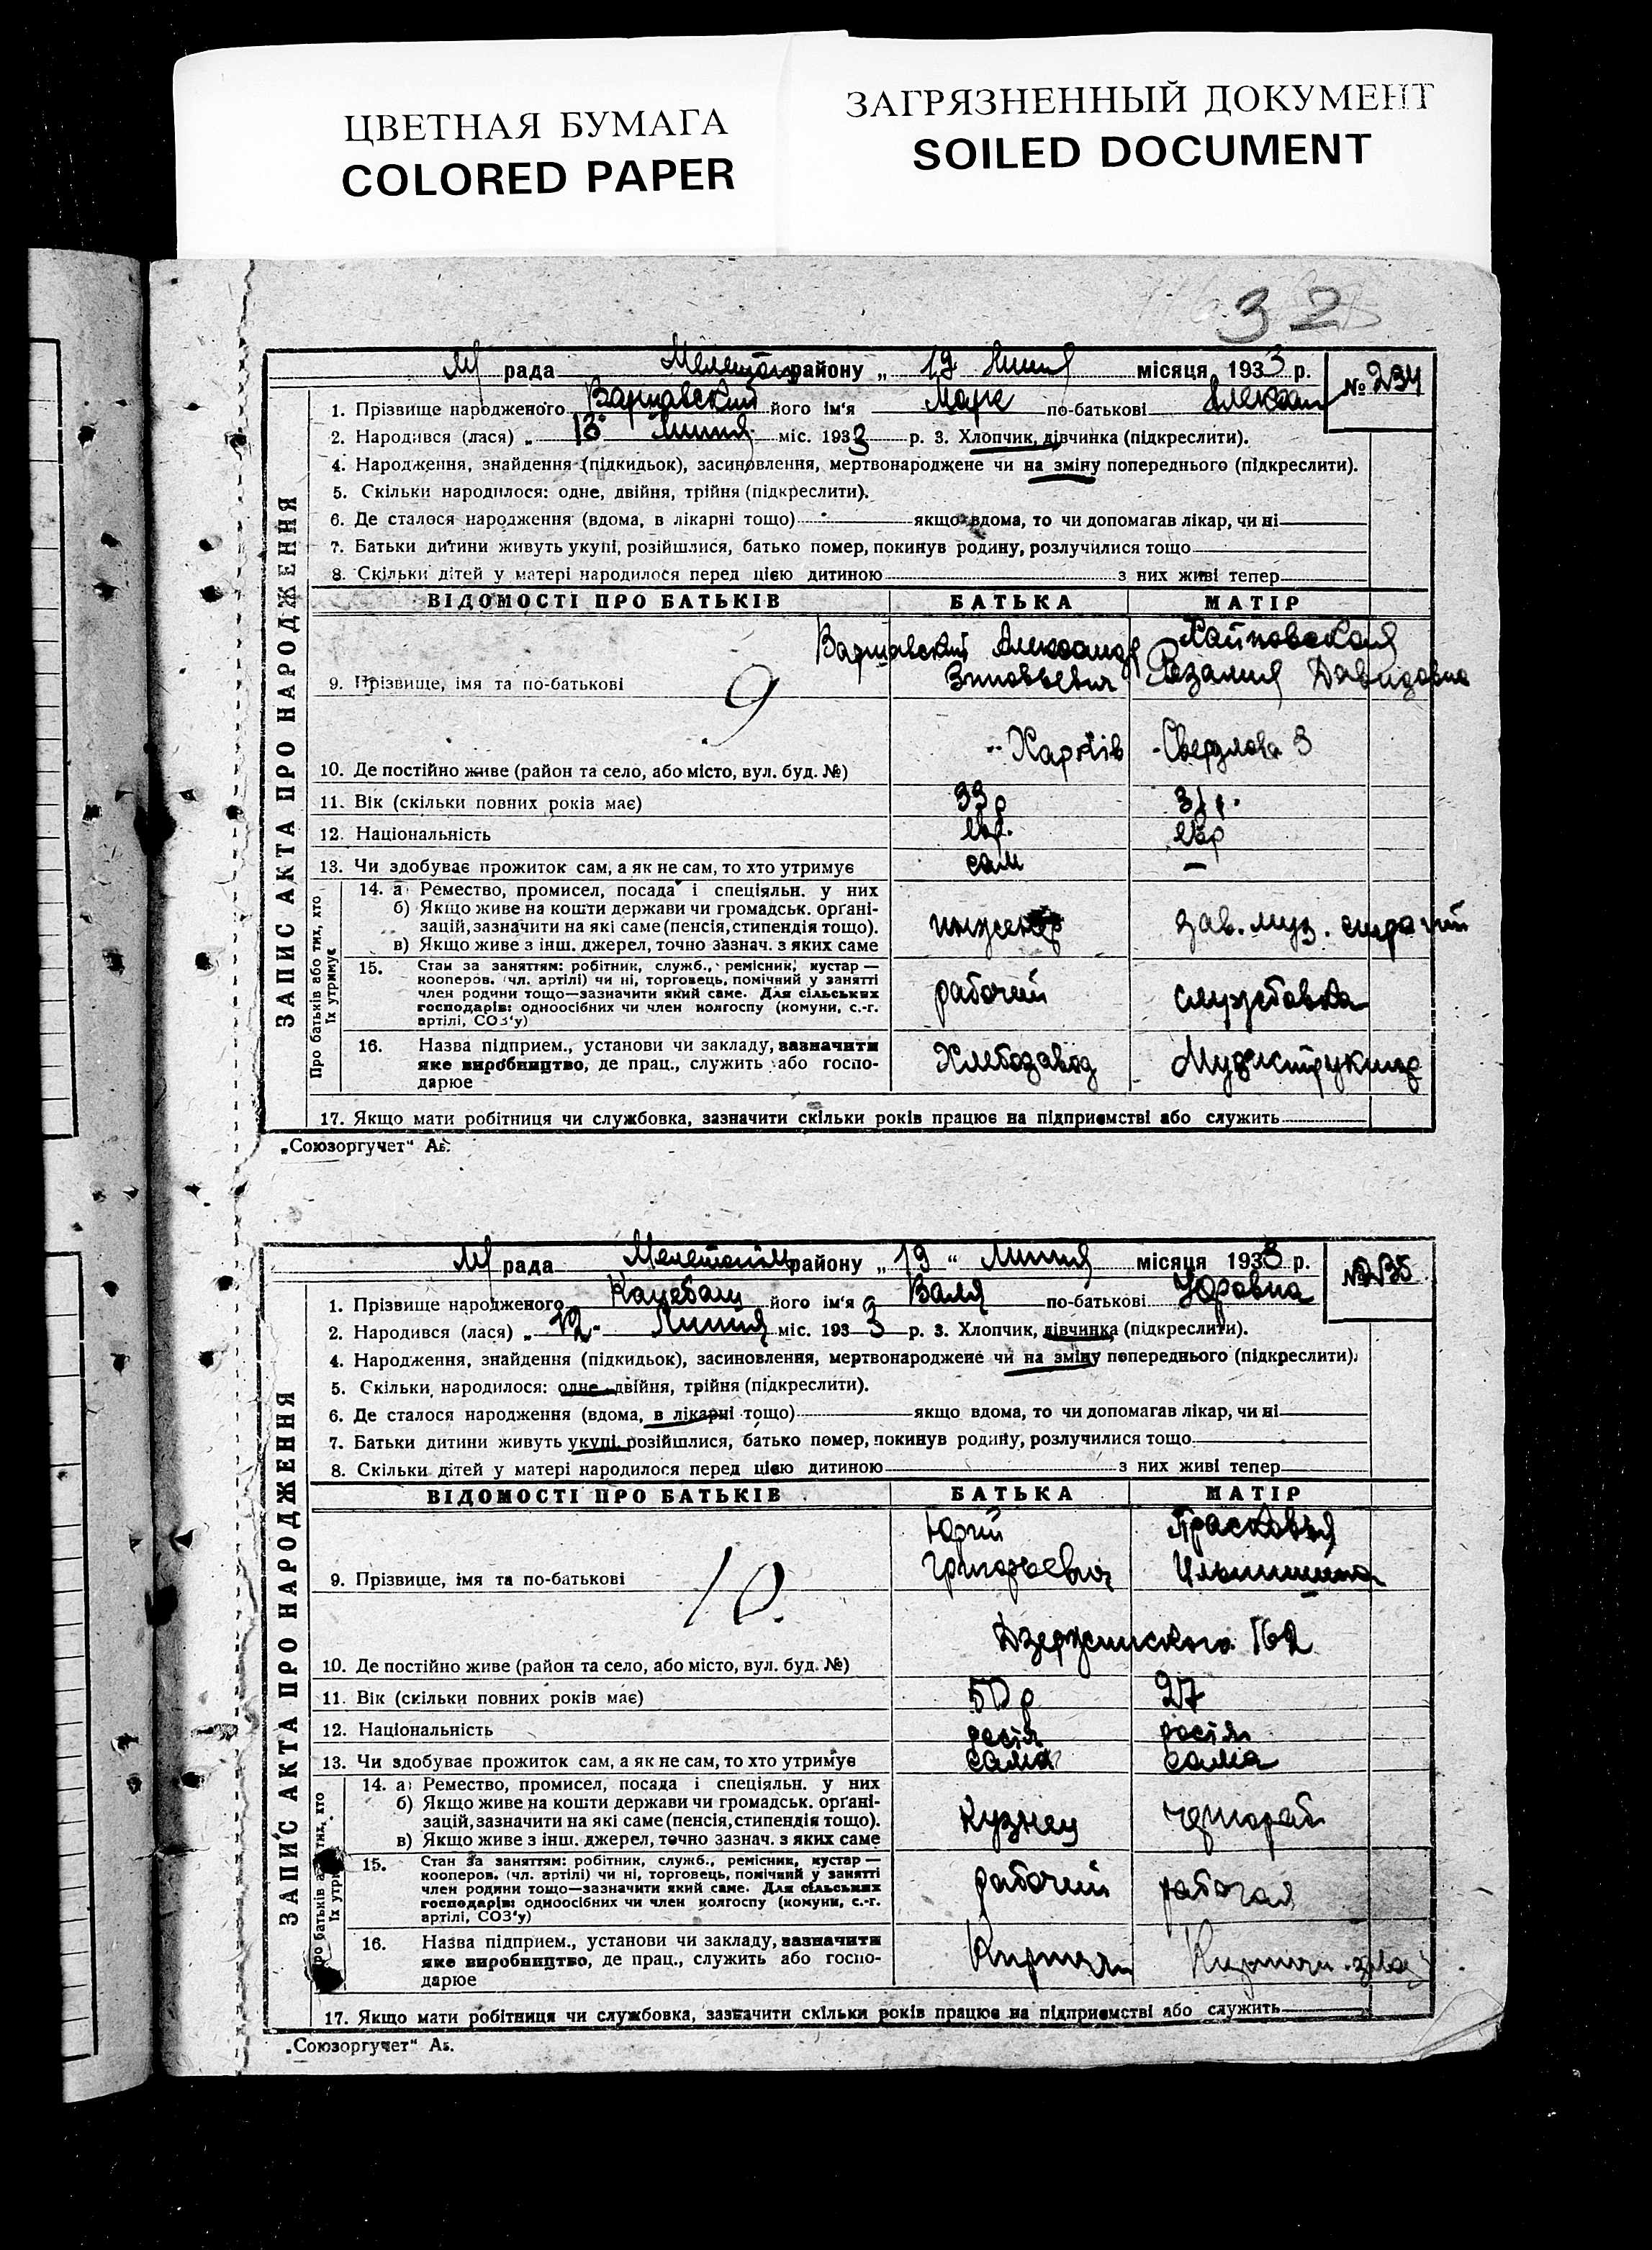 ЦВЕТНАЯ БУМАГА
COLORED PAPER
ЗАГРЯЗНЕННЫЙ ДОКУМЕНТ
SOILED DOCUMENT
32
рада района „ 19 Липня місяця 1933 р. № 234
1. Прізвище народженого Варшавский його ім'я Марк по-батькові
2. Народився (лася) „ 13 Липня міс. 1933 р. 3. Хлопчик, дівчинка (підкреслити).
4. Народження, знайдення (підкидьок), засиновлення, мертвонароджене чи на зміну попереднього (підкреслити).
5. Скільки народилося: одне, двійня, трійня (підкреслити).
6. Де сталося народження (вдома, в лікарні тощо) якщо вдома, то чи допомагав лікар, чи ні
7. Батьки дитини живуть укупі, розійшлися, батько помер, покинув родину, розлучилися тощо
8. Скільки дітей у матері народилося перед цією дитиною з них живі тепер
ЗАПИС АКТА ПРО НАРОДЖЕННЯ
ВІДОМОСТІ ПРО БАТЬКІВ БАТЬКА МАТІР
Варшавский Александр
Зиновьевич Розалия Давидовна
9. Прізвище, імя та по-батькові 9
Харків Свердлова 3
10. Де постійно живе (район та село, або місто, вул. буд. №)
11. Вік (скільки повних років має) 33 р 31 р.
12. Національність евр. евр
13. Чи здобуває прожиток сам, а як не сам, то хто утримує сам —
Про батьків або тих, хто їх утримує
14. а) Ремество, промисел, посада і спеціяльн. у них
б) Якщо живе на кошти держави чи громадськ. орґані-
зацій, зазначити на які саме (пенсія, стипендія тощо).
в) Якщо живе з інш. джерел, точно зазнач. з яких саме
инженер зав. муз.
15. Стан за заняттям: робітник, служб., ремісник, кустар —
кооперов. (чл. артілі) чи ні, торговець, помічний у занятті
член родини тощо—зазначити який саме. Для сільських
господарів: одноосібних чи член колгоспу (комуни, с.-г.
артілі, СОЗ'у)
рабочий службовка
16. Назва підприєм., установи чи закладу, зазначити
яке виробництво, де прац., служить або госпо-
дарює
Хлебозавод
17. Якщо мати робітниця чи службовка, зазначити скільки років працює на підприємстві або служить
„Союзоргучет“ Аг.
рада району „ 19 “ Липня місяця 1933 р. № 235
1. Прізвище народженого його ім'я Валя по-батькові Юровна
2. Народився (лася) „ 12 Липня міс. 1933 р. 3. Хлопчик, дівчинка (підкреслити).
4. Народження, знайдення (підкидьок), засиновлення, мертвонароджене чи на зміну попереднього (підкреслити).
5. Скільки народилося: одне, двійня, трійня (підкреслити).
6. Де сталося народження (вдома, в лікарні тощо) якщо вдома, то чи допомагав лікар, чи ні
7. Батьки дитини живуть укупі, розійшлися, батько помер, покинув родину, розлучилися тощо
8. Скільки дітей у матері народилося перед цією дитиною з них живі тепер
ЗАПИС АКТА ПРО НАРОДЖЕННЯ
ВІДОМОСТІ ПРО БАТЬКІВ БАТЬКА МАТІР
Юрий Прасковья
Григорьевич
9. Прізвище, імя та по-батькові 10
Дзержинского 162
10. Де постійно живе (район та село, або місто, вул. буд. №)
11. Вік (скільки повних років має) 50 р 27
12. Національність росія росіян
13. Чи здобуває прожиток сам, а як не сам, то хто утримує сама сама
14. а) Ремество, промисел, посада і спеціяльн. у них
б) Якщо живе на кошти держави чи громадськ. орґані-
зацій, зазначити на які саме (пенсія, стипендія тощо).
в) Якщо живе з інш. джерел, точно зазнач. з яких саме
Кузнец чернораб
15. Стан за заняттям: робітник, служб., ремісник, кустар —
кооперов. (чл. артілі) чи ні, торговець, помічний у занятті
член родини тощо—зазначити який саме. Для сільських
господарів: одноосібних чи член колгоспу (комуни, с.-г.
артілі, СОЗ'у)
рабочий рабочая
16. Назва підприєм., установи чи закладу, зазначити
яке виробництво, де прац., служить або госпо-
дарює
17. Якщо мати робітниця чи службовка, зазначити скільки років працює на підприємстві або служить
„Союзоргучет“ Аг.